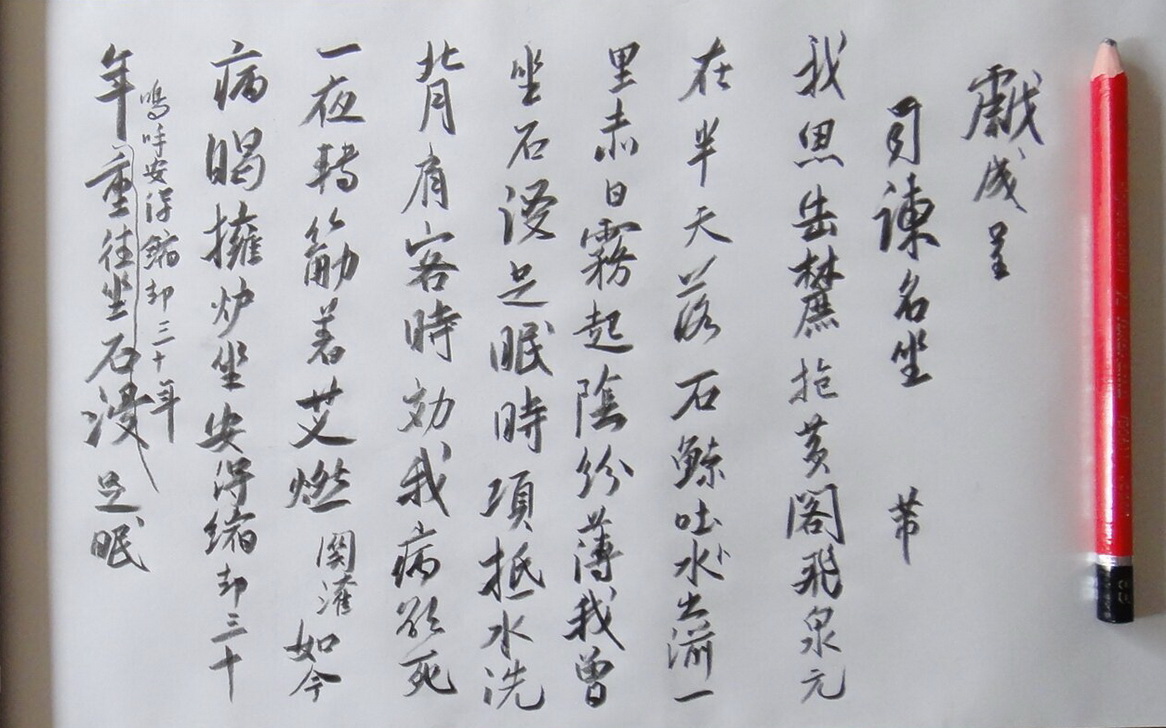 戲成呈
司諫台坐 芾
我思岳麓抱黃閣飛泉元
在半天落石鯨吐水出湔一
里赤日霧起陰紛薄我曾
坐石浸足眠時項抵水洗
背肩客時効我病欲死
一夜轉筋着艾燃 關灌 如今
病暍擁炉坐安得縮却三十
嗚呼安得縮却三十年
年重往坐石浸足眠